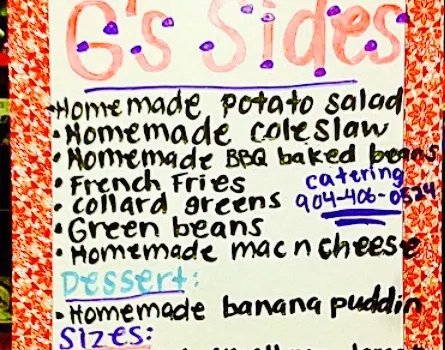 G's Sides
•Homemade potato salad
•Homemade coleslaw
•Homemade BBQ baked beans
•French Fries
catering
•collard greens
904-406-0524
•Green beans
•Homemade mac n cheese
Dessert:
•Homemade banana puddin
SIZES: